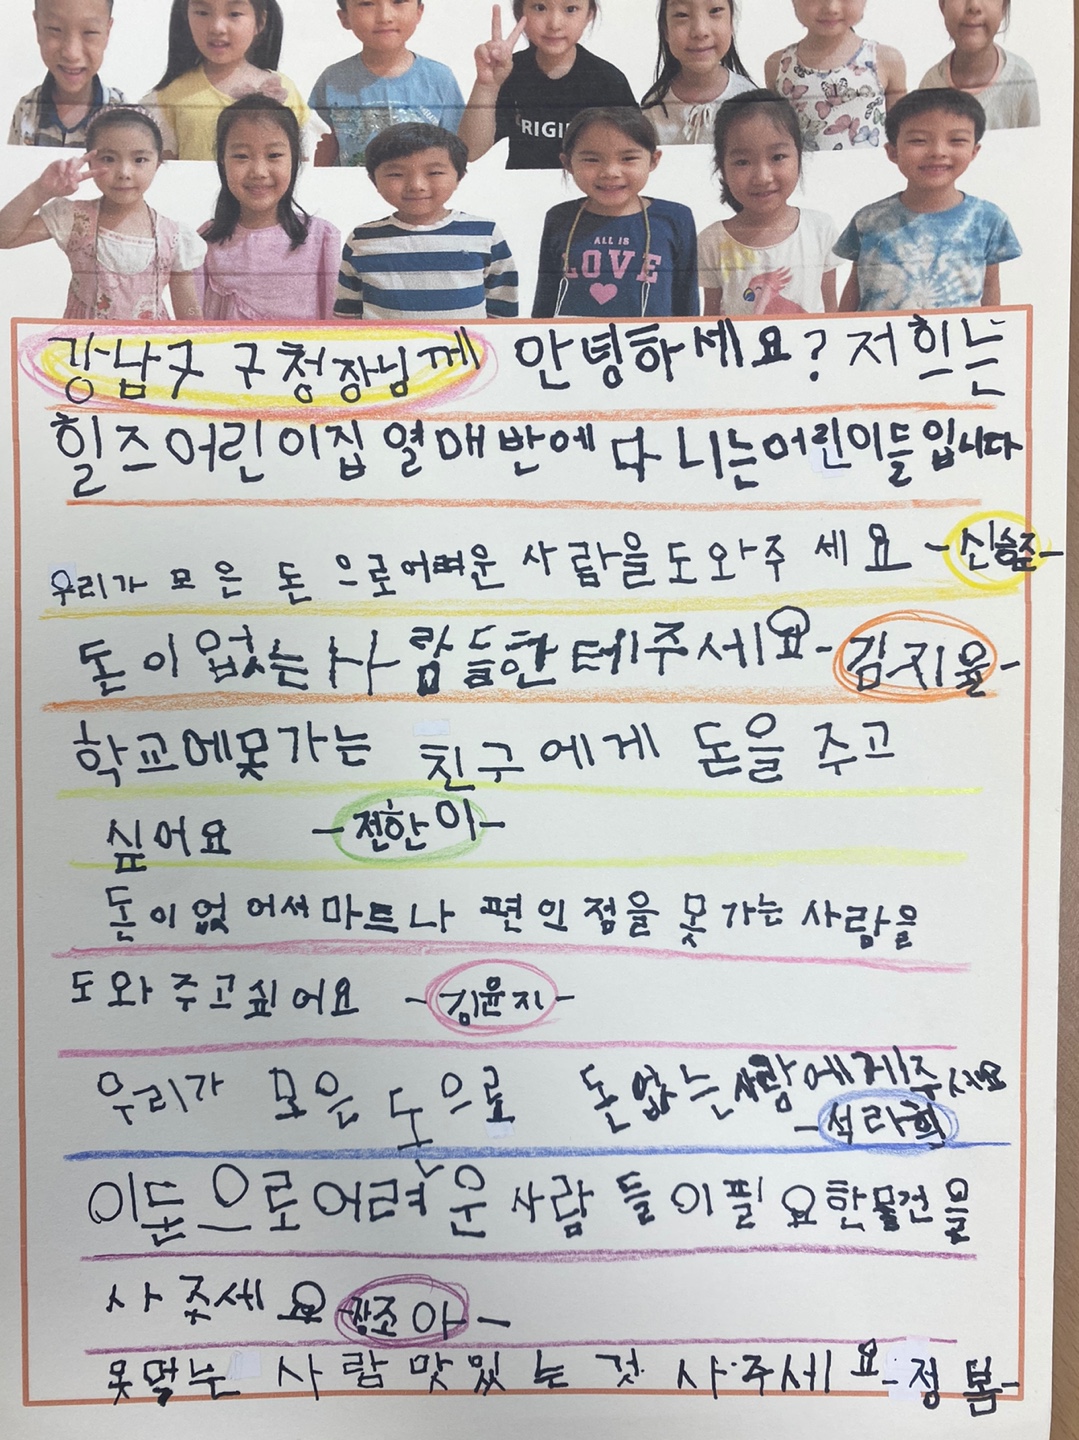 RIGI
ALL IS
LOVE
강남구 구청장님께 안녕하세요? 저희는
힐즈어린이집 열매반에 다니는어린이들입니다
우리가 모은 돈으로어려운 사람을도와주세요 -신승준-
돈이없는사람들한테주세요-김지율-
학교에못가는 친구에게 돈을 주고
싶어요 -전한이-
돈이없어서마트나 편의점을 못가는 사람을
도와주고싶어요 -김윤지-
우리가 모은 돈으로 돈없는사람에게주세요
-석라희
이돈으로어려운사람들이필요한물건을
사주세요-장조아-
못먹는 사람 맛있는 것 사주세요-정봄-